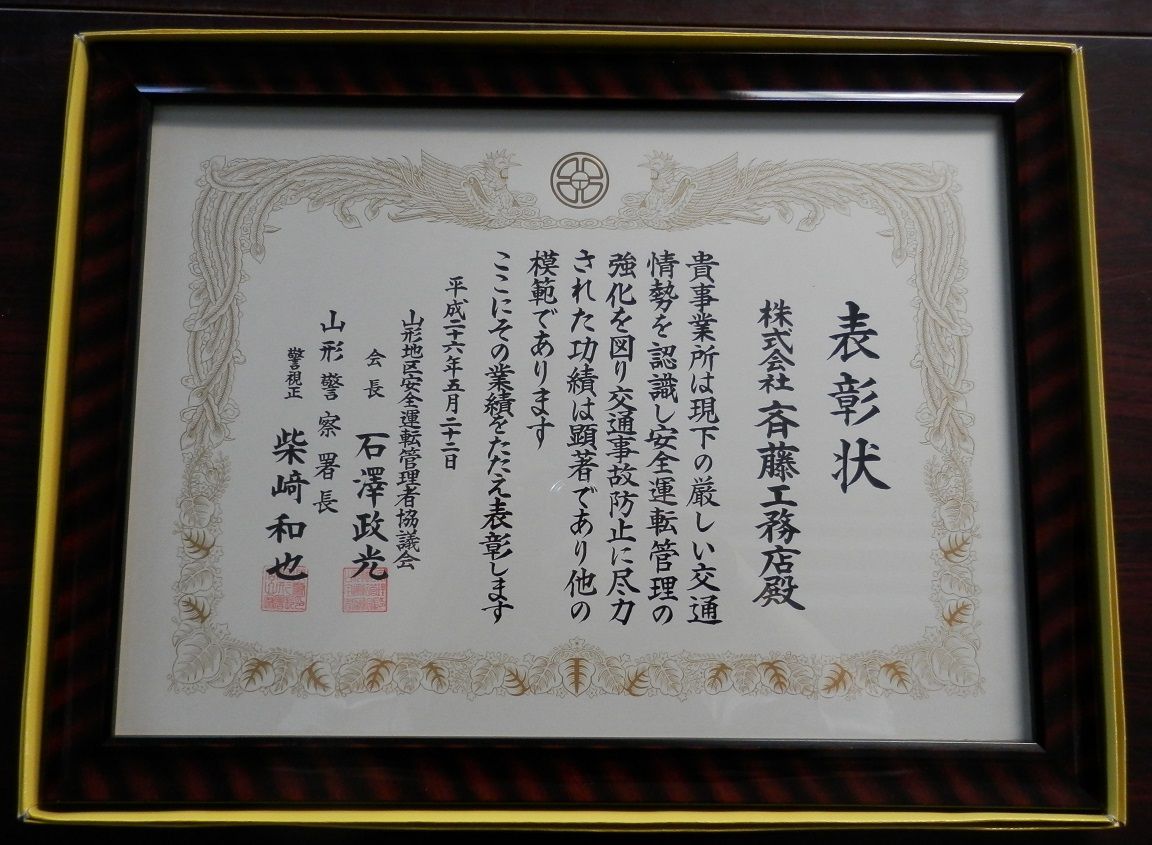 表彰状
株式会社 斉藤工務店殿
貴事業所は現下の厳しい交通
情勢を認識し安全運転管理の
強化を図り交通事故防止に尽力
された功績は顕著であり他の
模範であります
ここにその業績をたたえ表彰します
平成二十六年五月二十二日
山形地区安全運転管理者協議会
会長 石澤政光
山形警察署長
警視正 柴﨑和也